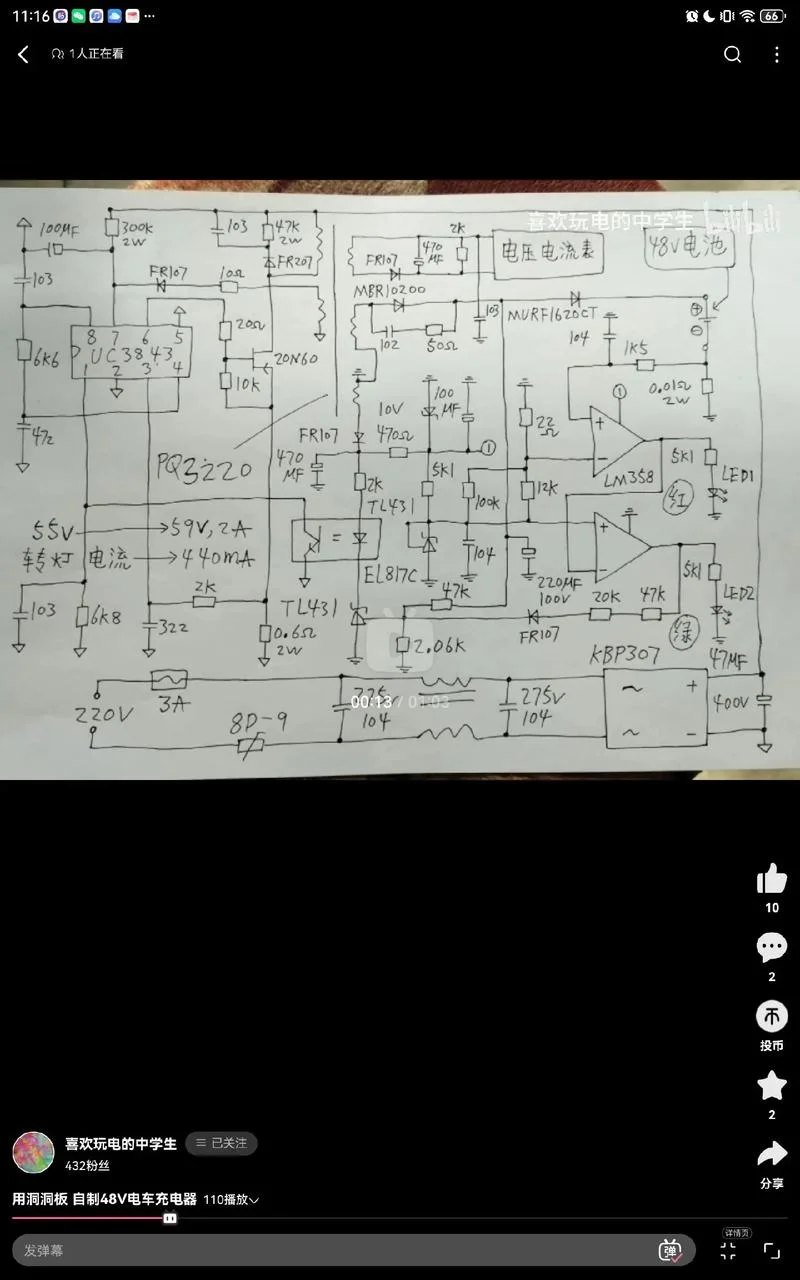 11:16
66
1人正在看
喜欢玩电的中学生 bilibili
100μF
300k
2W
103
47k
2W
FR207
FR107
470
MF
2k
电压电流表
48V电池
103
FR107
10Ω
MBR10200
102
50Ω
103
MURF1620CT
104
1K5
0.01Ω
2W
8 7 6 5
UC3843
1 2 3 4
6k6
20Ω
10k
20N60
472
PQ3220
FR107
470
MF
10V
470Ω
100
MF
①
22
Ω
①
LM358
5K1
LED1
红
2K
5K1
TL431
100k
12k
104
EL817C
55V → 59V, 2A
转灯 电流 → 440mA
220MF
100V
5k1
LED2
绿
103
6k8
322
2k
0.6Ω
2W
TL431
47k
2.06k
FR107
20K
47k
KBP307
47MF
400V
220V
3A
8D-9
275v
104
00:13 / 01:03
275V
104
~ +
~ -
10
2
投币
2
分享
喜欢玩电的中学生
已关注
432粉丝
用洞洞板 自制48V电车充电器 110播放
发弹幕
弹
详情页